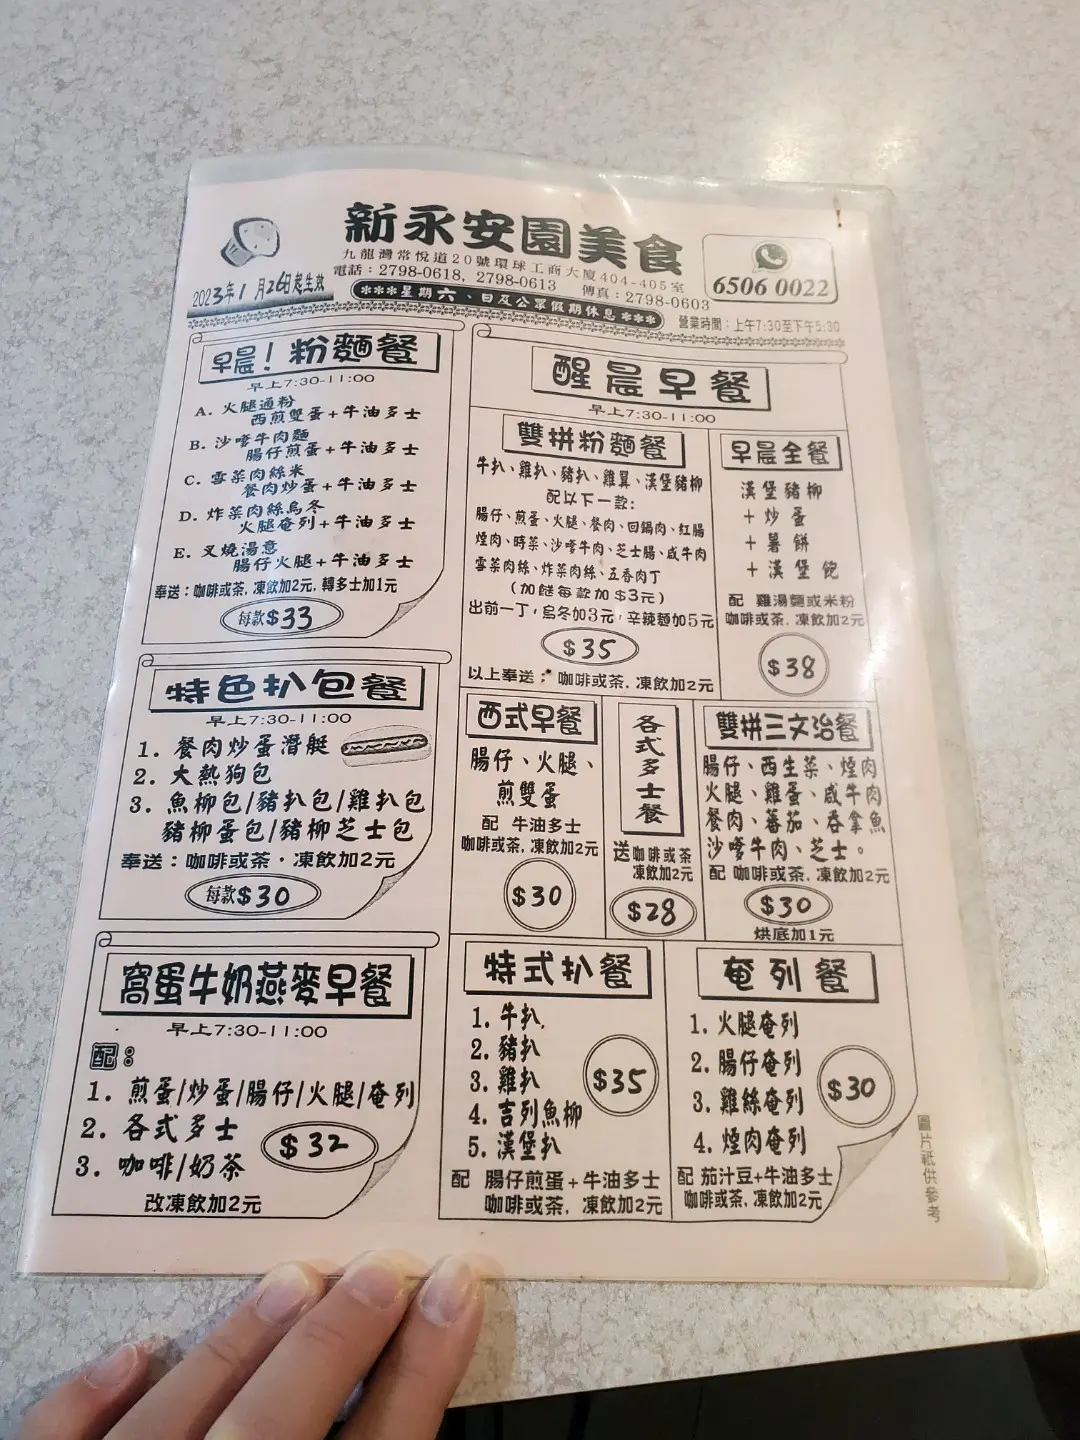 新永安園美食
九龍灣常悅道20號環球工商大廈404-405室
電話：2798-0618, 2798-0613 傳真：2798-0603
6506 0022
2023年1月26日起生效
***星期六、日及公眾假期休息***
營業時間：上午7:30至下午5:30
早晨！粉麵餐
早上7:30-11:00
A. 火腿通粉
西煎雙蛋+牛油多士
B. 沙嗲牛肉麵
腸仔煎蛋+牛油多士
C. 雪菜肉絲米
餐肉炒蛋+牛油多士
D. 炸菜肉絲烏冬
火腿奄列+牛油多士
E. 叉燒湯意
腸仔火腿+牛油多士
奉送：咖啡或茶, 凍飲加2元, 轉多士加1元
每款$33
特色扒包餐
早上7:30-11:00
1. 餐肉炒蛋潛艇
2. 大熱狗包
3. 魚柳包/豬扒包/雞扒包
豬柳蛋包/豬柳芝士包
奉送：咖啡或茶，凍飲加2元
每款$30
窩蛋牛奶燕麥早餐
早上7:30-11:00
配：
1. 煎蛋/炒蛋/腸仔/火腿/奄列
2. 各式多士
3. 咖啡/奶茶
$32
改凍飲加2元
醒晨早餐
早上7:30-11:00
雙拼粉麵餐
牛扒、雞扒、豬扒、雞翼、漢堡豬柳
配以下一款：
腸仔、煎蛋、火腿、餐肉、回鍋肉、紅腸
煙肉、時菜、沙嗲牛肉、芝士腸、咸牛肉
雪菜肉絲、炸菜肉絲、五香肉丁
(加餸每款加$3元)
出前一丁，烏冬加3元，辛辣麵加5元
$35
以上奉送：咖啡或茶, 凍飲加2元
早晨全餐
漢堡豬柳
+炒蛋
+薯餅
+漢堡飽
配 雞湯麵或米粉
咖啡或茶, 凍飲加2元
$38
西式早餐
腸仔、火腿、
煎雙蛋
配 牛油多士
咖啡或茶, 凍飲加2元
$30
各式多士餐
送咖啡或茶
凍飲加2元
$28
雙拼三文治餐
腸仔、西生菜、煙肉
火腿、雞蛋、咸牛肉
餐肉、蕃茄、吞拿魚
沙嗲牛肉、芝士。
配 咖啡或茶, 凍飲加2元
$30
烘底加1元
特式扒餐
1. 牛扒,
2. 豬扒
3. 雞扒
4. 吉列魚柳
5. 漢堡扒
$35
配 腸仔煎蛋+牛油多士
咖啡或茶, 凍飲加2元
奄列餐
1. 火腿奄列
2. 腸仔奄列
3. 雞絲奄列
4. 煙肉奄列
$30
配 茄汁豆+牛油多士
咖啡或茶, 凍飲加2元
圖片祇供參考